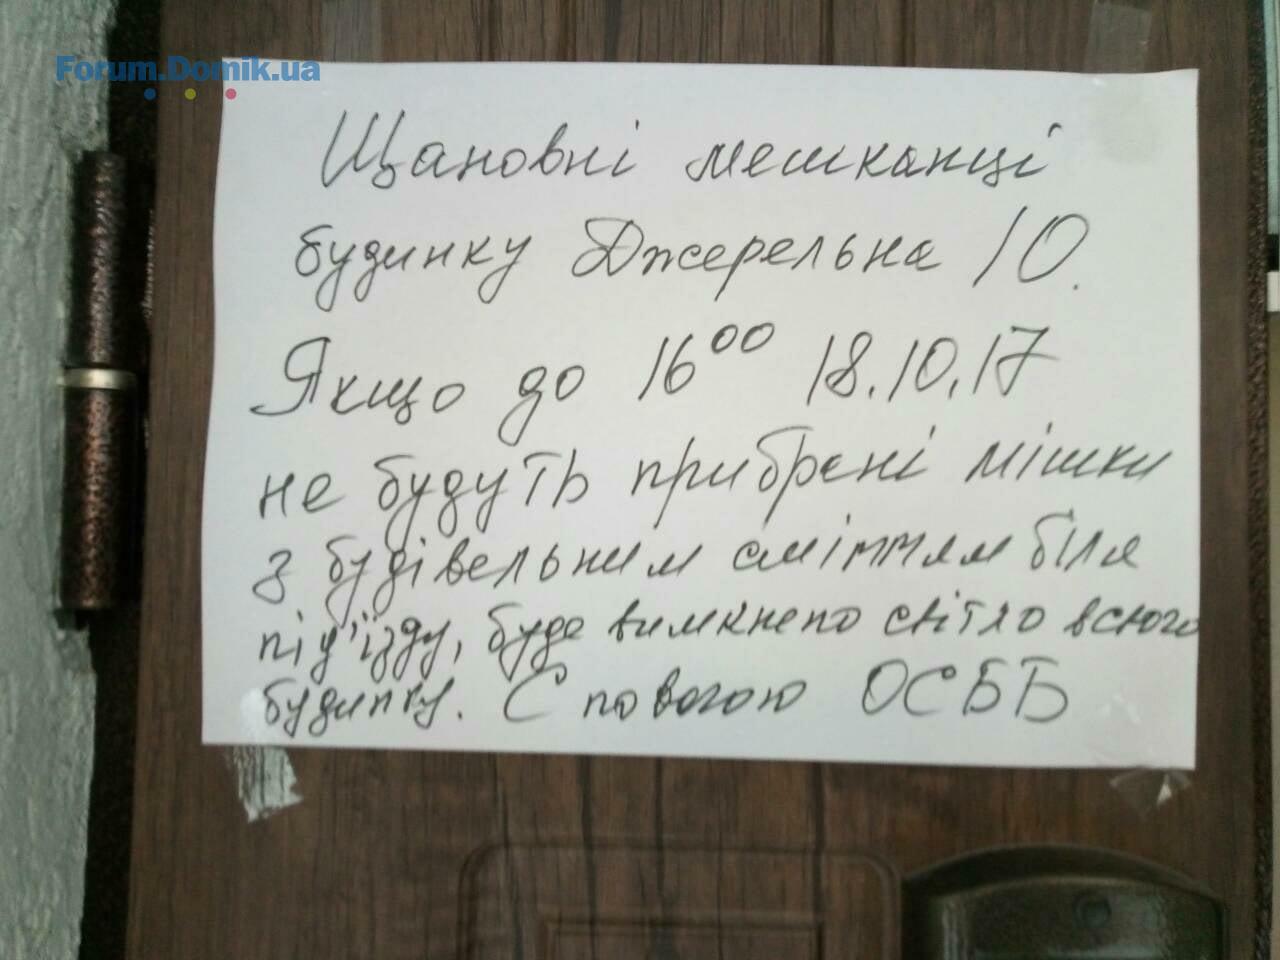 Forum.Domik.ua
Щановні мешканці
будинку Джерельна 10.
Якщо до 16⁰⁰ 18.10.17
не будуть прибрані мішки
з будівельним сміттям біля
під'їзду, буде вимкнено світло всього
будинку. С повагою ОСББ